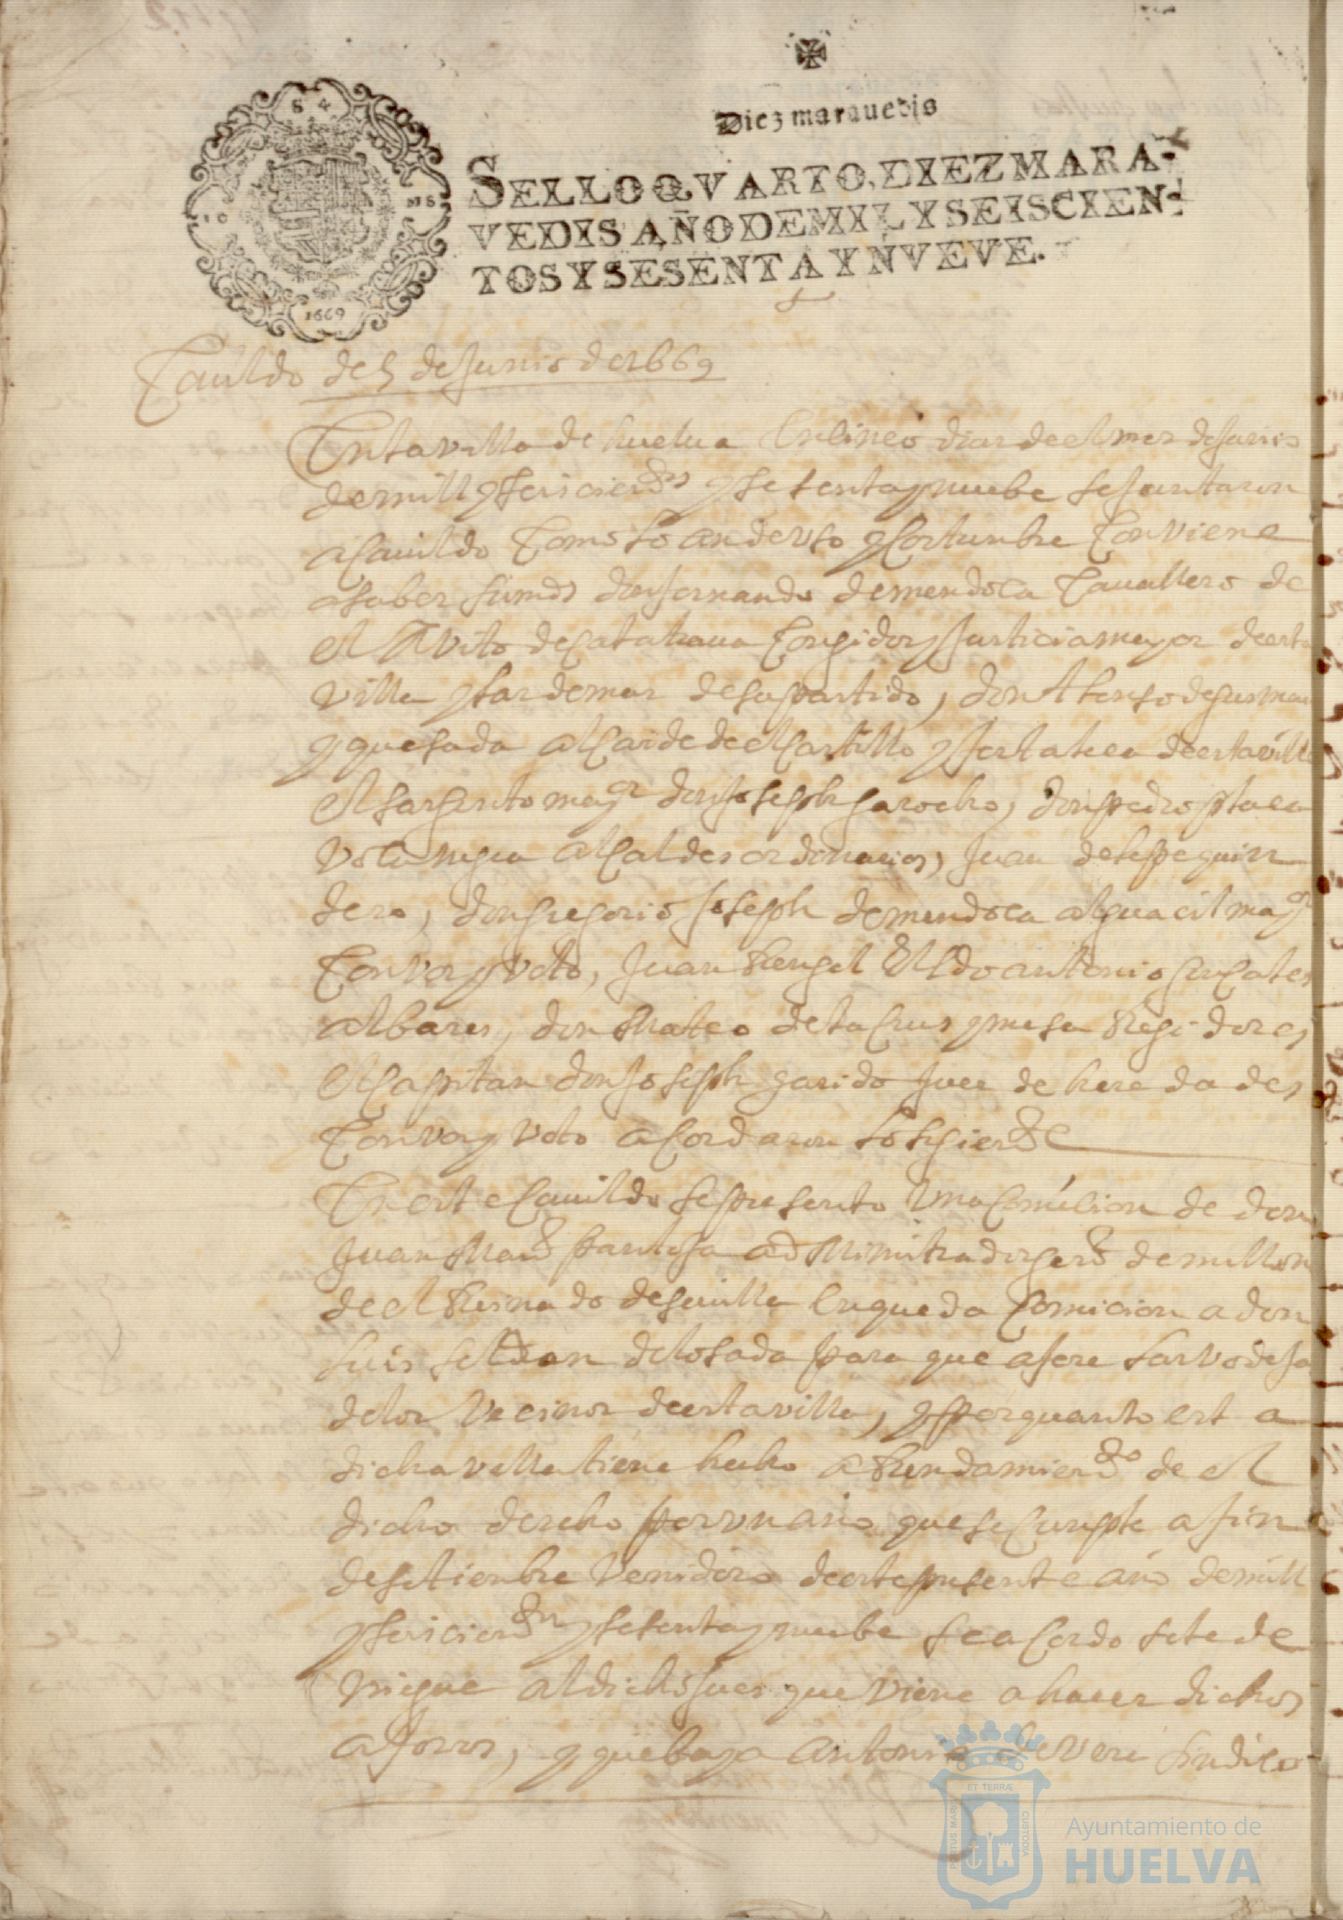 Diez maravedis
SELLO QVARTO, DIEZ MARA-
VEDIS AÑO DE MIL Y SEISCIEN-
TOS Y SESENTA Y NVEVE.
1669
Cauildo de 5 de Junio de 1669
En la villa de huelua En cinco dias de el mes de Junio
de mill y seiscientos y sesenta y nuebe se Juntaron
a Cauildo Como lo an de vso y Costunbre Conviene
a saber su md don fernando de mendoca Cauallero de
el Avito de Calatraua Coregidor y Justicia mayor de esta
villa y las demas de su partido, don Alonso de gusman
y quesada alcaide de el Castillo y fortaleca de esta villa
el sargento mayor don Joseph garocho, don pedro
alcaldes ordinarios, Juan de
dero, don gregorio Joseph de mendoca alguacil mayor
Con vos y voto, Juan Rangel el Ldo antonio
albares, don Mateo de la Crus y mesa Regidores
el Capitan don Joseph garido Jues de heredades
Con vos y voto acordaron lo siguiente
En este Cauildo se presento Vna Comision de don
Juan pantoja administrador general de millones
de el Reinado de seuilla en que da Comicion a don
luis de losada para que afore
de los Vecinos de esta villa, y por quanto esta
dicha villa tiene hecho arrendamiento de el
dicho derecho por vn año que se Cunple a fin
de setienbre Venidero de este presente año de mill
y seiscientos y sesenta y nuebe se acordo se le de
niegue al dicho Jues que viene a hacer dichos
aforos, y que baya Antonio sindico
PORTUS MARIS ET TERRÆ CUSTODIA
Ayuntamiento de
HUELVA